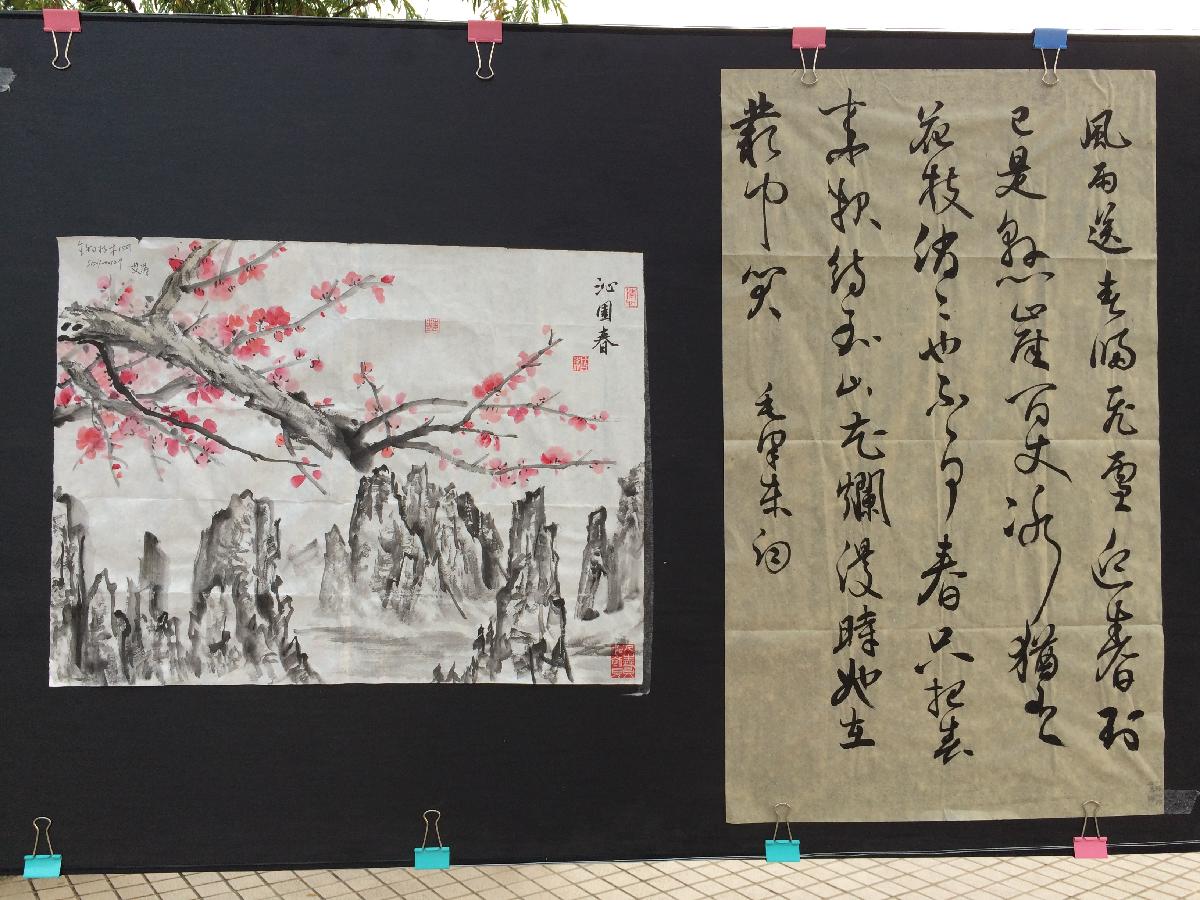 風雨送春歸飛雪迎春到
已是懸崖百丈冰猶有
花枝俏〻也不爭春只把春
來報待到山花爛漫時她在
叢中笑 毛澤東詞
沁園春